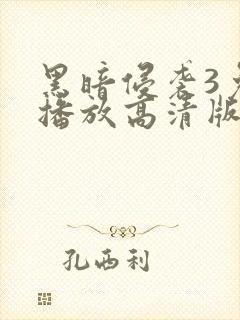 黑暗侵袭3免
播放高清版
孔西利